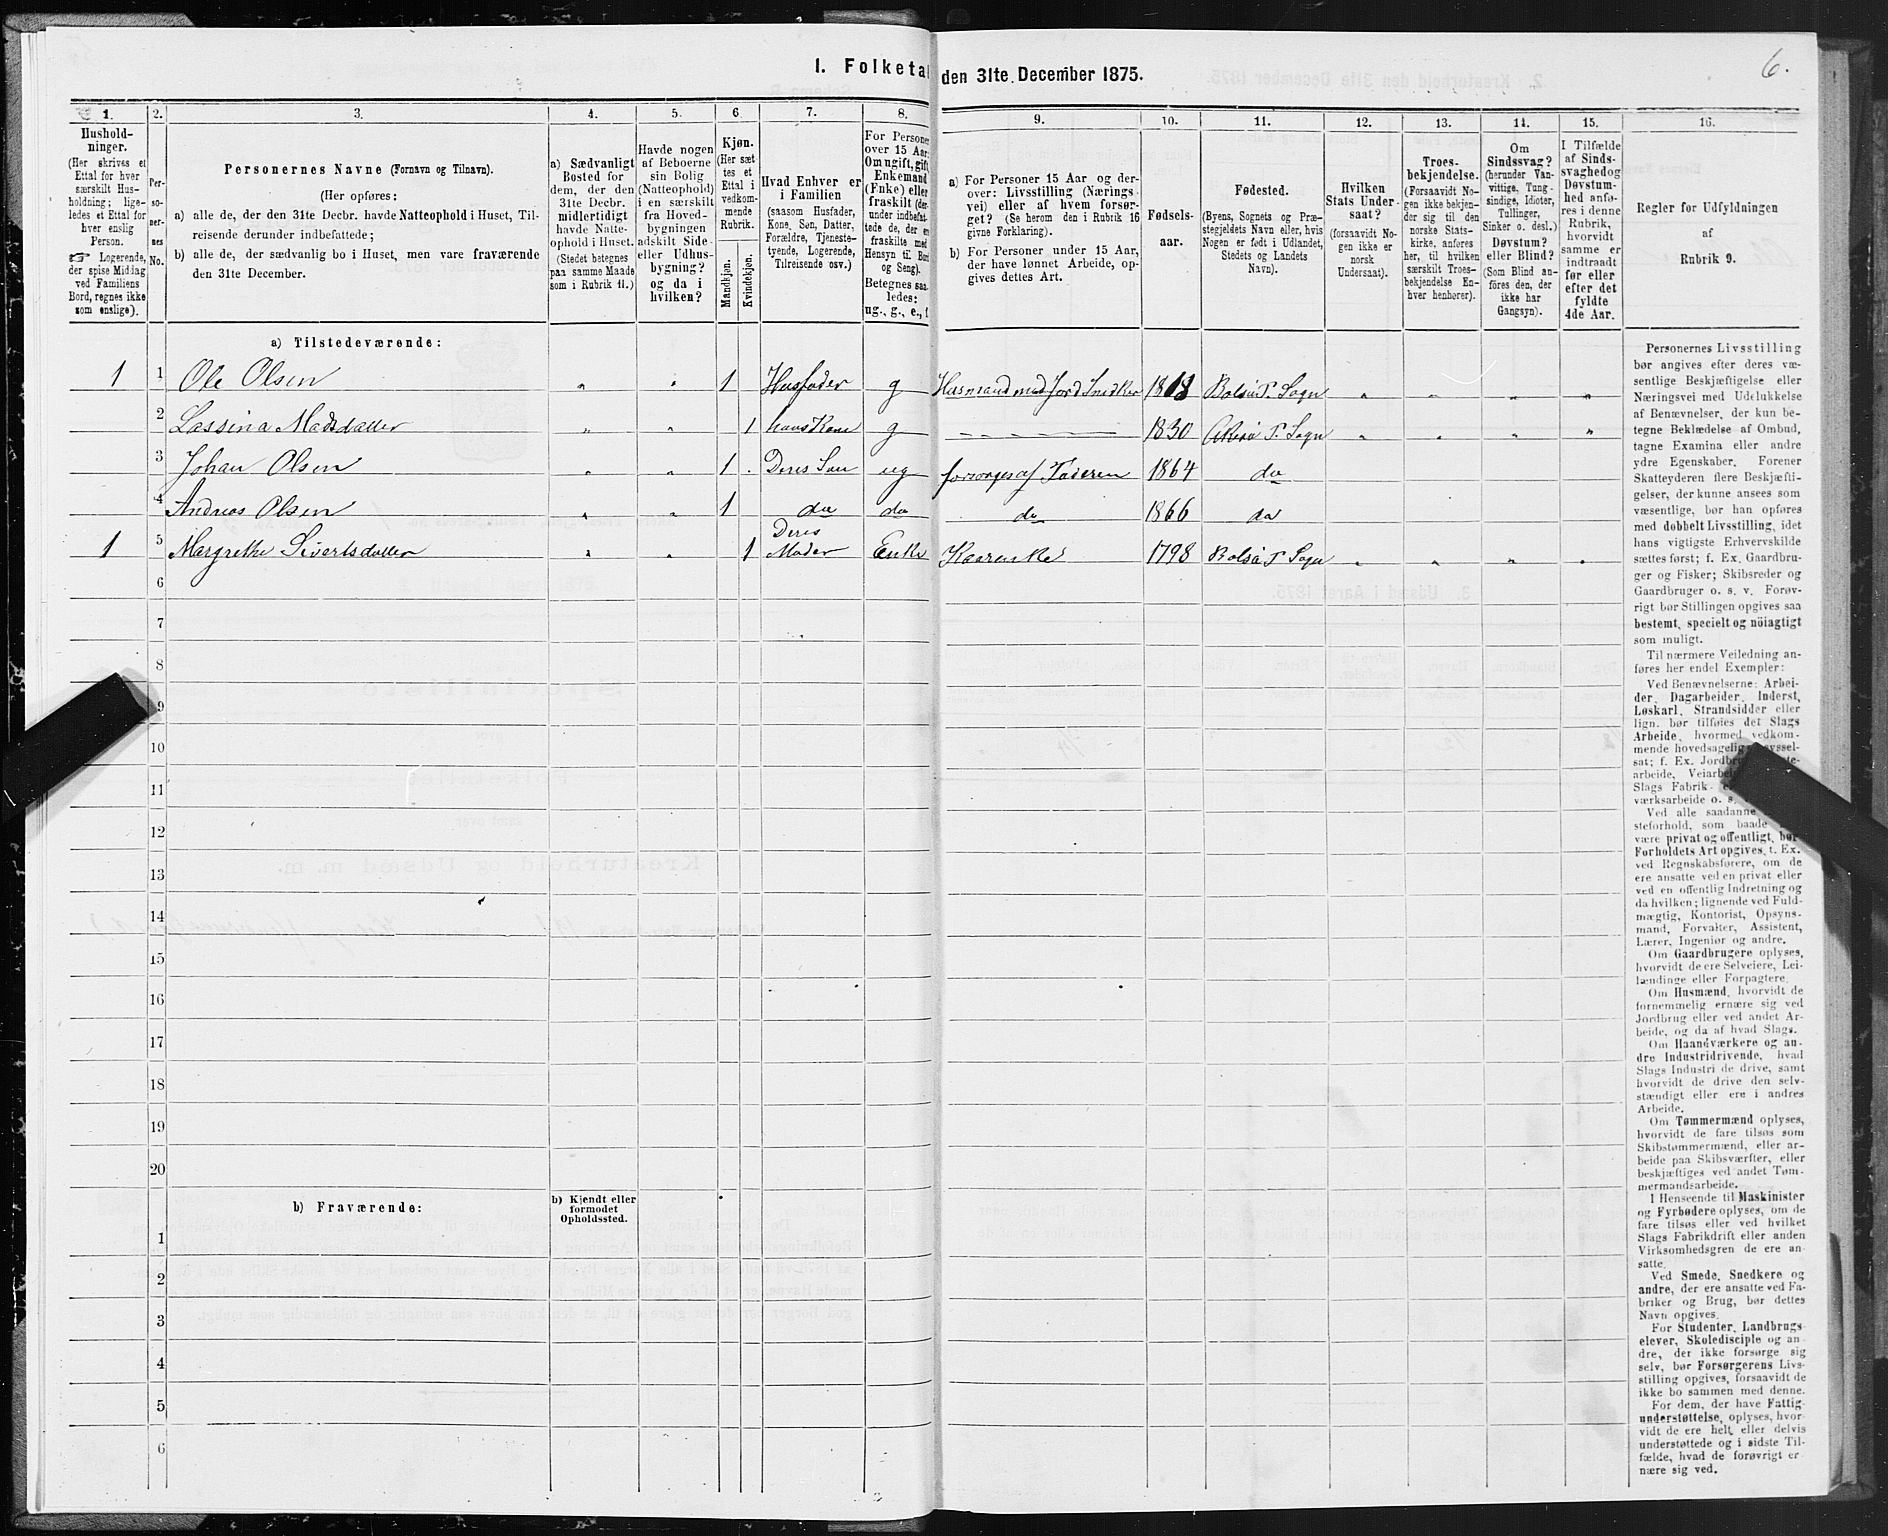 I. Folketal den 31te December 1875.
6.
1.
Hushold-
ninger.
(Her skrives et
Ettal for hver
særskilt Hus-
holdning; lige-
ledes et Ettal for
hver enslig
Person.
☞ Logerende,
der spise Middag
ved Familiens
Bord, regnes ikke
som enslige).
2.
Per-
so-
ner-
nes
No.
3.
Personernes Navne (Fornavn og Tilnavn).
(Her opføres:
a) alle de, der den 31te Decbr. havde Natteophold i Huset, Til-
reisende derunder indbefattede;
b) alle de, der sædvanlig bo i Huset, men vare fraværende
den 31te December.
4.
a) Sædvanligt
Bosted for
dem, der den
31te Decbr.
midlertidigt
havde Natte-
ophold i Huset.
(Stedet betegnes
paa samme Maade
som i Rubrik 11.)
5.
Havde nogen
af Beboerne
sin Bolig
(Natteophold)
i en særskilt
fra Hoved-
bygningen
adskilt Side-
eller Udhus-
bygning?
og da i
hvilken?
6
Kjøn.
(Her sæt-
tes et
Ettal i
vedkom-
mende
Rubrik.
Mandkjøn.
Kvindekjøn.
7.
Hvad Enhver er
i Familien
(saasom Husfader,
Kone, Søn, Datter,
Forældre, Tjeneste-
tyende, Logerende,
Tilreisende osv.)
8.
For Personer
over 15 Aar:
Om ugift, gift,
Enkemand
(Enke) eller
fraskilt (der-
under indbefat-
tede de, der er
fraskilte med
Hensyn til Bord
og Seng).
Betegnes saa-
ledes:
ug., g., e., f.
9.
a) For Personer 15 Aar og der-
over: Livsstilling (Nærings-
vei) eller af hvem forsør-
get? (Se herom den i Rubrik 16
givne Forklaring).
b) For Personer under 15 Aar,
der have lønnet Arbeide, op-
gives dettes Art.
10.
Fødsels-
aar.
11.
Fødested.
(Byens, Sognets og Præ-
stegjeldets Navn eller, hvis
Nogen er født i Udlandet,
Stedets og Landets
Navn).
12.
Hvilken
Stats Under-
saat?
(forsaavidt No-
gen ikke er
norsk
Undersaat).
13.
Troes-
bekjendelse.
(Forsaavidt No-
gen ikke bekjen-
der sig til den
norske Stats-
kirke, anføres
her, til hvilken
særskilt Troes-
bekjendelse En-
hver henhører).
14.
Om
Sindssvag?
(herunder Van-
vittige, Tung-
sindige, Idioter,
Tullinger,
Sinker o. desl.)
Døvstum?
eller Blind?
(Som Blind an-
føres den, der
ikke har
Gangsyn).
15.
I Tilfælde
af Sinds-
svaghed og
Døvstum-
hed anfø-
res i denne
Rubrik,
hvorvidt
samme er
indtraadt
før eller
efter det
fyldte
4de Aar.
16.
Regler for Udfyldningen
af
Rubrik 9.
a) Tilstedeværende:
1 1 Ole Olsen „ „ 1 Husfader g Husmand med Jord Snedker 1818 Bolsø P. Sogn „ „ „ „
2 Lassina Madsdatter „ „ 1 hans Kone g — — — 1830 Akerø P. Sogn „ „ „ „
3 Johan Olsen „ „ 1 . Deres Søn ug forsørges af Faderen 1864 do
4 Andreas Olsen „ „ 1 do do do 1866 do
1 5 Margrethe Sivertsdatter „ „ 1 Deres Moder Enke Kaarenke 1798 Bolsø P Sogn „ „ „ „
6
7
8
9
10
11
12
13
14
15
16
17
18
19
20
b) Fraværende:
b) Kjendt eller
formodet
Opholdssted.
1
2
3
4
5
6
Personernes Livsstilling
bør angives efter deres væ-
sentlige Beskjæftigelse eller
Næringsvei med Udelukkelse
af Benævnelser, der kun be-
tegne Beklædelse af Ombud,
tagne Examina eller andre
ydre Egenskaber. Forener
Skatteyderen flere Beskjæfti-
gelser, der kunne ansees som
væsentlige, bør han opføres
med dobbelt Livsstilling, idet
hans vigtigste Erhvervskilde
sættes først; f. Ex. Gaardbru-
ger og Fisker; Skibsreder og
Gaardbruger o. s. v. Forøv-
rigt bør Stillingen opgives saa
bestemt, specielt og nöiagtigt
som muligt.
Til nærmere Veiledning an-
føres her endel Exempler:
Ved Benævnelserne: Arbei-
der, Dagarbeider, Inderst,
Løskarl, Strandsidder eller
lign. bør tilføies det Slags
Arbeide, hvormed vedkom-
mende hovedsagelig
sat; f. Ex.
arbeide,
Slags Fabrik-
værksarbeide o. s.
Ved alle saadanne
steforhold, som baade
være privat og offentligt, bør
Forholdets Art opgives, f. Ex.
ved Regnskabsførere, om de
ere ansatte ved en privat eller
ved en offentlig Indretning og
da hvilken; lignende ved Fuld-
mægtig, Kontorist, Opsyns-
mand, Forvalter, Assistent,
Lærer, Ingeniør og andre.
Om Gaardbrugere oplyses,
hvorvidt de ere Selveiere, Lei-
lændinge eller Forpagtere.
Om Husmænd, hvorvidt de
fornemmelig ernære sig ved
Jordbrug eller ved andet Ar-
beide, og da af hvad Slags.
Om Haandværkere og an-
dre Industridrivende, hvad
Slags Industri de drive, samt
hvorvidt de drive den selv-
stændigt eller ere i andres
Arbeide.
Om Tømmermænd oplyses,
hvorvidt de fare tilsøs som
Skibstømmermænd, eller ar-
beide paa Skibsværfter, eller
beskjæftiges ved andet Tøm-
mermandsarbeide.
I Henseende til Maskinister
og Fyrbødere oplyses, om de
fare tilsøs eller ved hvilket
Slags Fabrikdrift eller anden
Virksomhedsgren de ere an-
satte.
Ved Smede, Snedkere og
andre, der ere ansatte ved Fa-
briker og Brug, bør dettes
Navn opgives.
For Studenter, Landbrugs-
elever, Skoledisciple og an-
dre, der ikke forsørge sig
selv, bør Forsørgerens Livs-
stilling opgives, forsaavidt de
ikke bo sammen med denne.
For dem, der have Fattig-
understøttelse, oplyses, hvor-
vidt de ere helt eller delvis
understøttede og i sidste Til-
fælde, hvad de forøvrigt er-
nære sig ved.